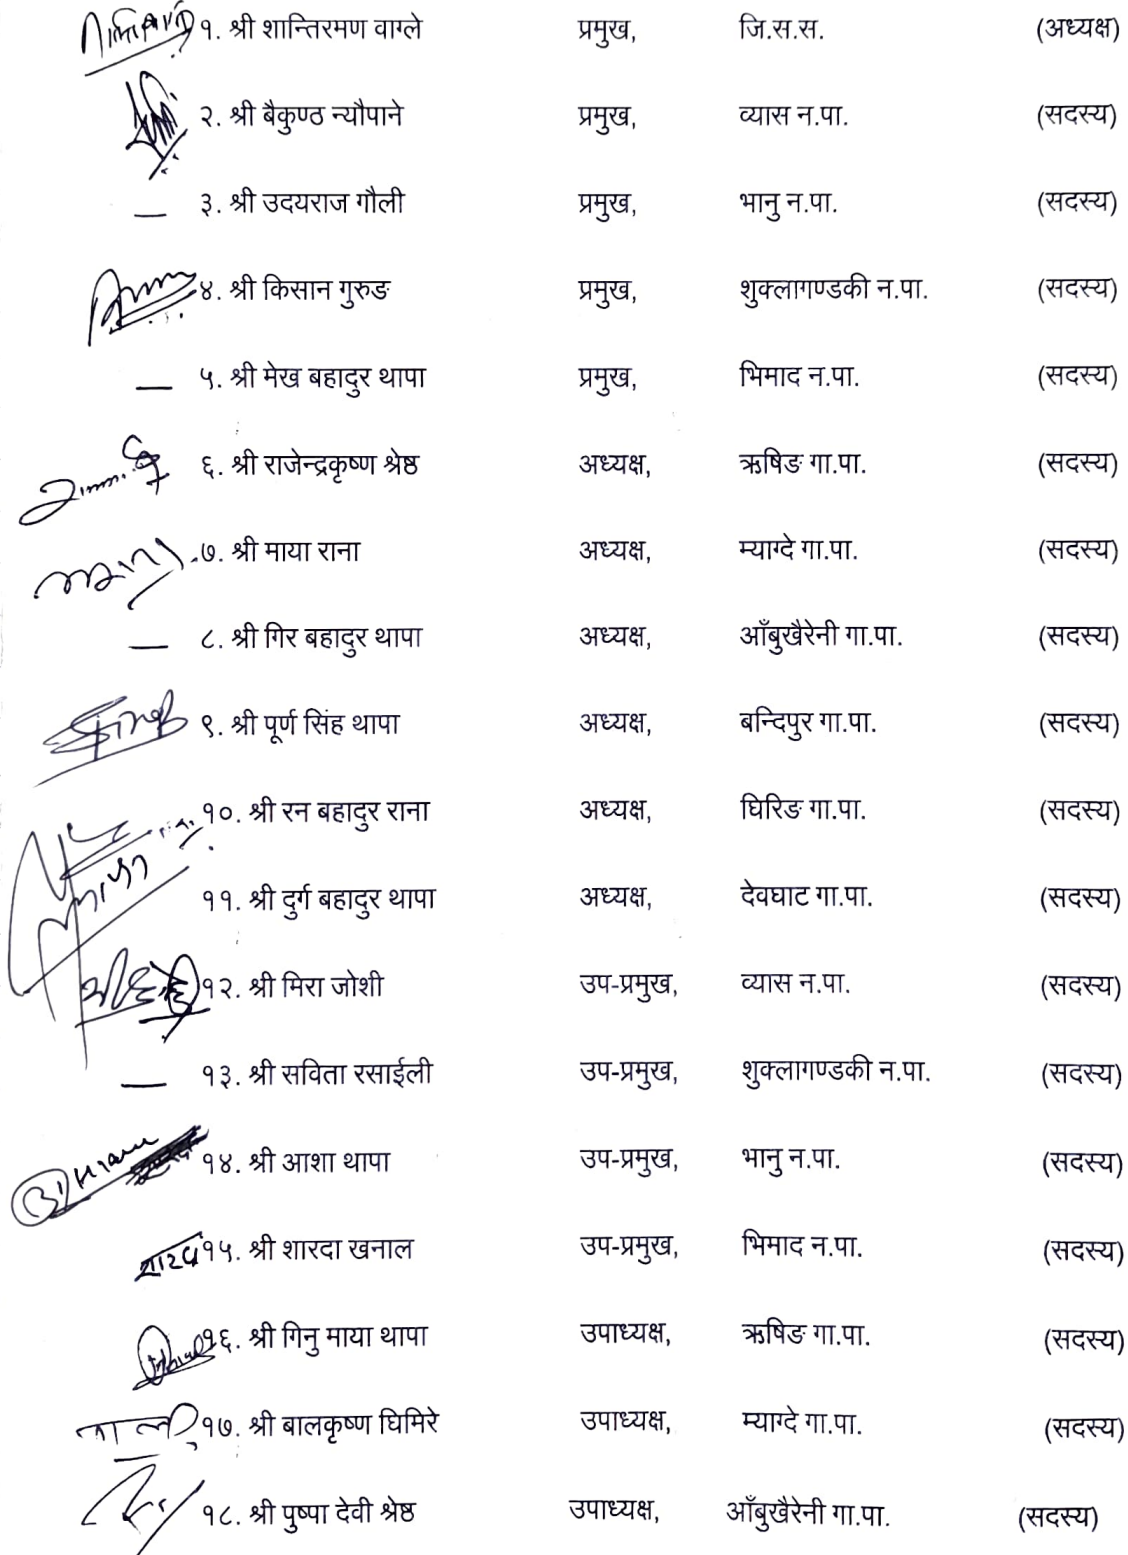 १. श्री शान्तिरमण वाग्ले प्रमुख, जि.स.स. (अध्यक्ष)
२. श्री बैकुण्ठ न्यौपाने प्रमुख, व्यास न.पा. (सदस्य)
३. श्री उदयराज गौली प्रमुख, भानु न.पा. (सदस्य)
४. श्री किसान गुरुङ प्रमुख, शुक्लागण्डकी न.पा. (सदस्य)
५. श्री मेख बहादुर थापा प्रमुख, भिमाद न.पा. (सदस्य)
६. श्री राजेन्द्रकृष्ण श्रेष्ठ अध्यक्ष, ऋषिङ गा.पा. (सदस्य)
७. श्री माया राना अध्यक्ष, म्याग्दे गा.पा. (सदस्य)
८. श्री गिर बहादुर थापा अध्यक्ष, आँबुखैरेनी गा.पा. (सदस्य)
९. श्री पूर्ण सिंह थापा अध्यक्ष, बन्दिपुर गा.पा. (सदस्य)
१०. श्री रन बहादुर राना अध्यक्ष, घिरिङ गा.पा. (सदस्य)
११. श्री दुर्ग बहादुर थापा अध्यक्ष, देवघाट गा.पा. (सदस्य)
१२. श्री मिरा जोशी उप-प्रमुख, व्यास न.पा. (सदस्य)
१३. श्री सविता रसाईली उप-प्रमुख, शुक्लागण्डकी न.पा. (सदस्य)
१४. श्री आशा थापा उप-प्रमुख, भानु न.पा. (सदस्य)
१५. श्री शारदा खनाल उप-प्रमुख, भिमाद न.पा. (सदस्य)
१६. श्री गिनु माया थापा उपाध्यक्ष, ऋषिङ गा.पा. (सदस्य)
१७. श्री बालकृष्ण घिमिरे उपाध्यक्ष, म्याग्दे गा.पा. (सदस्य)
१८. श्री पुष्पा देवी श्रेष्ठ उपाध्यक्ष, आँबुखैरेनी गा.पा. (सदस्य)